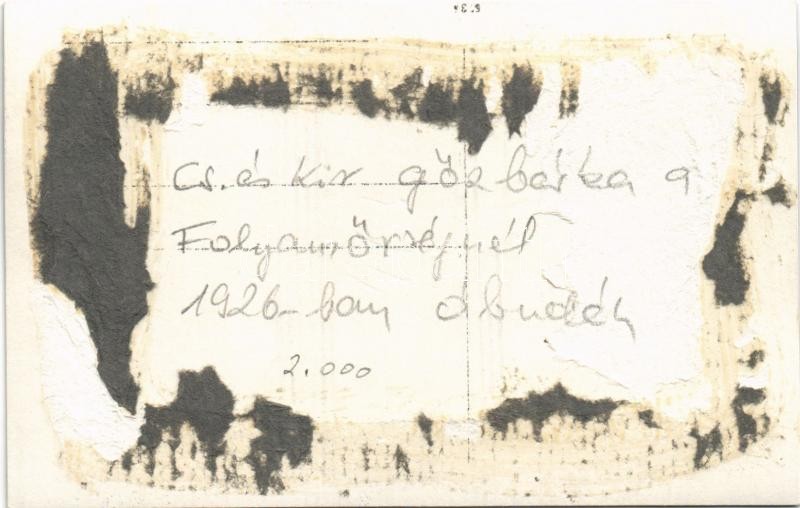 Cs. és Kir gőzbárka a
Folyamőrségnél
1926-ban óbudán
2.000